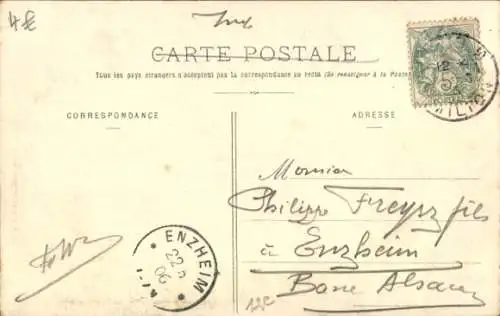 4€
CARTE POSTALE
Tous les pays étrangers n'acceptent pas la correspondance au recto (Se renseigner à la Poste)
CORRESPONDANCE
ADRESSE
Monsieur
Philippe Freysz fils
à Enzheim
Basse Alsace
ENZHEIM
22
06
12
5